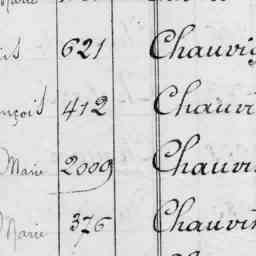 Marie
is 621 Chauvig
nçois 412 Chauvi
Marie 2009 Chauvin
Marie 376 Chauvin